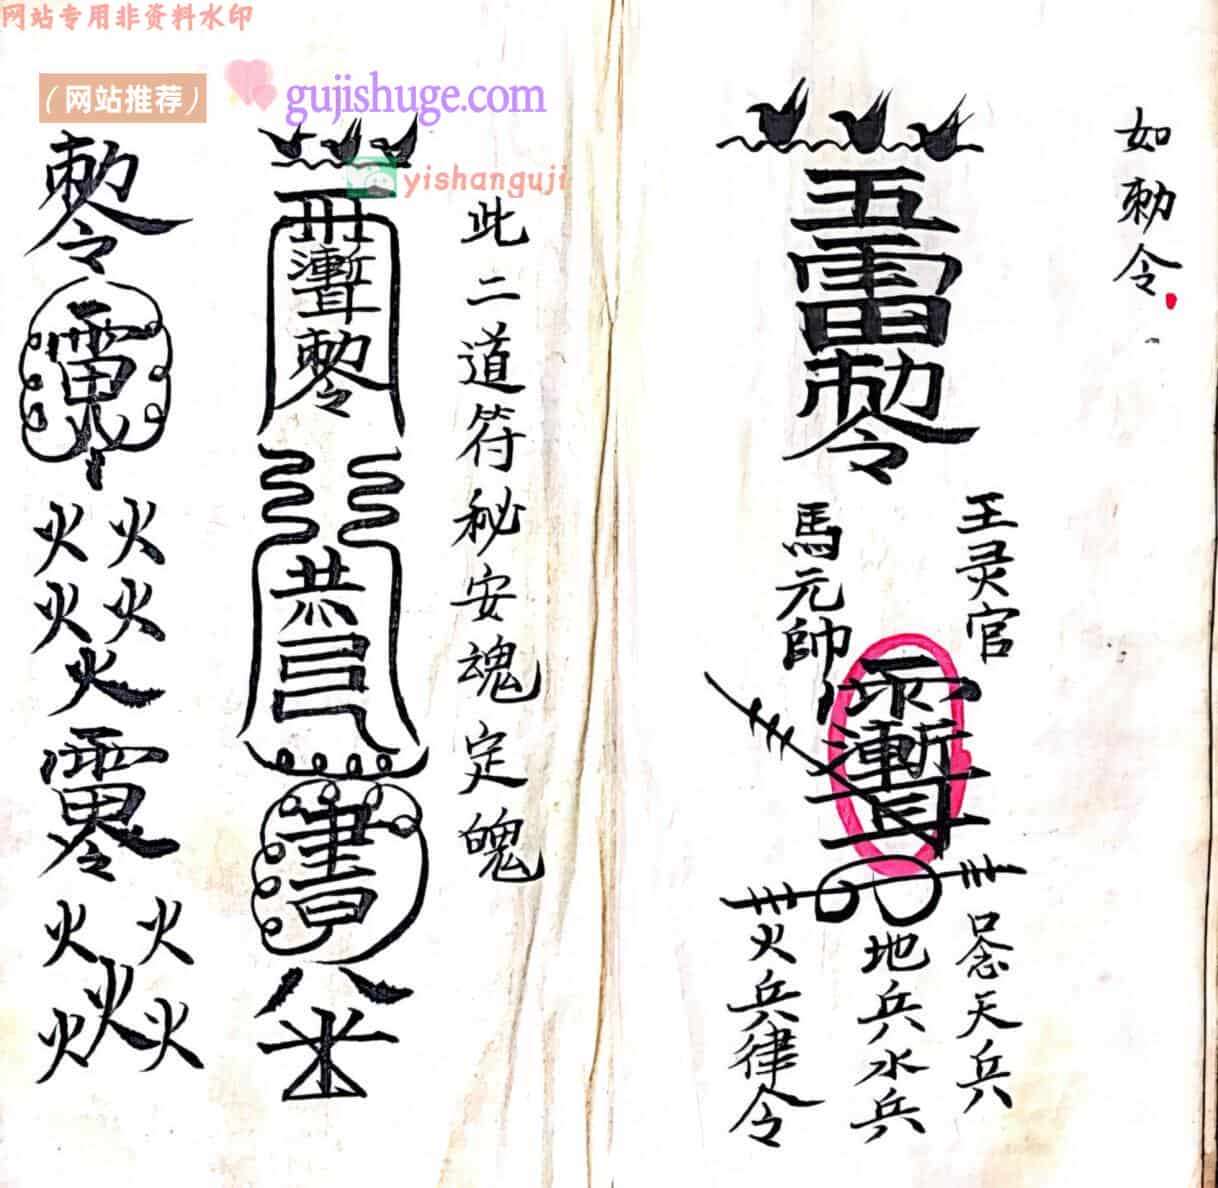 网站专用非资料水印
（网站推荐）
gujishuge.com
yishanguji
如勅令
五雷勅令
王灵官
馬元帥
口念天兵
地兵水兵
火兵律令
此二道符秘安魂定魄
勅令
勅令
火火
火火
火
火火
火
火火